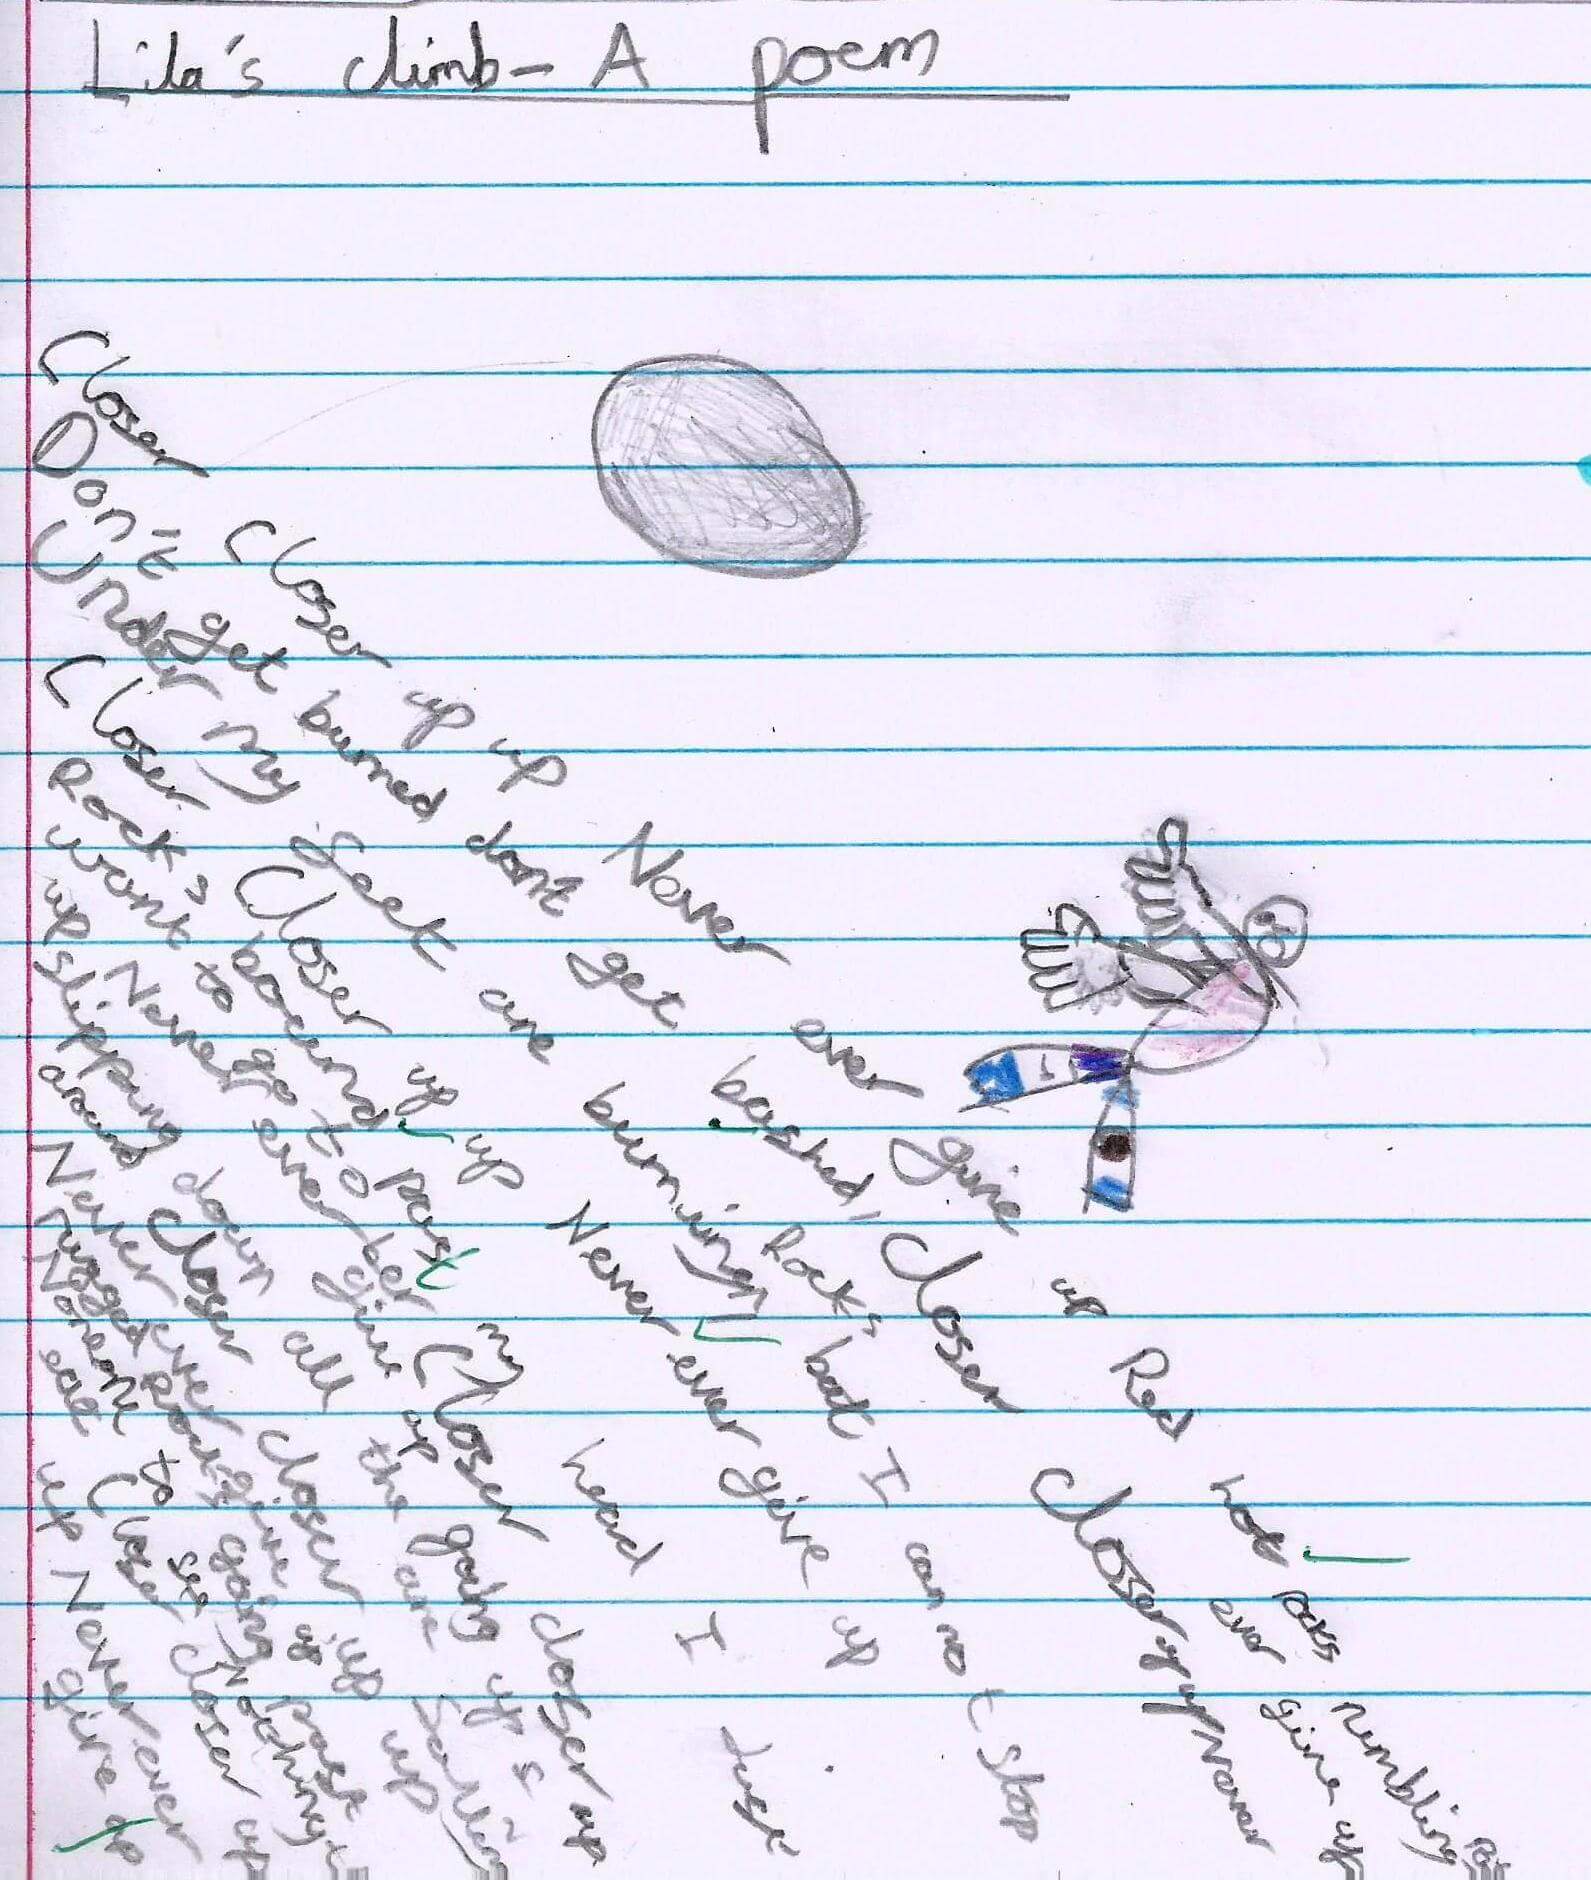 Lila's climb - A poem
Closer Closer up up Never ever give up Red hot rocks rumbling
Don't get burned don't get bashed, Closer Closer up up Never ever give up
Under my feet are burning Rocks but I can not stop
Closer Closer up up Never ever give up
Rock's bound past my head I Just
want to go to Closer closer up
up Never ever give up going up's
slipping down all the are
around Closer closer up up
Never ever give up
rugged Rock's going past
Noone to see Nothing
eat Closer closer up
up Never ever
give up